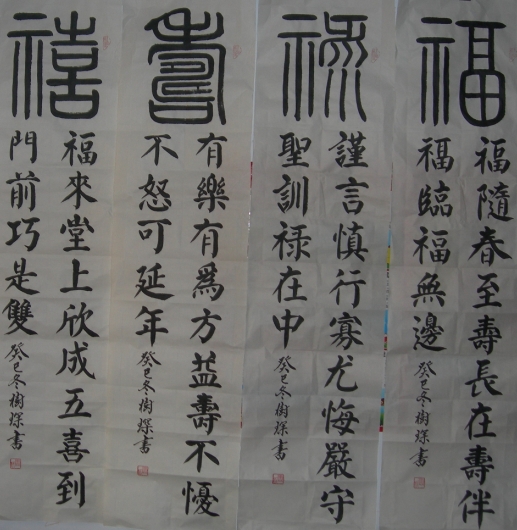 福
福隨春至壽長在壽伴
福臨福無邊
癸巳冬樹琛書
祿
謹言慎行寡尤悔嚴守
聖訓禄在中
癸巳冬樹琛書
壽
有樂有爲方益壽不憂
不怒可延年
癸巳冬樹琛書
禧
福來堂上欣成五喜到
門前巧是雙
癸巳冬樹琛書